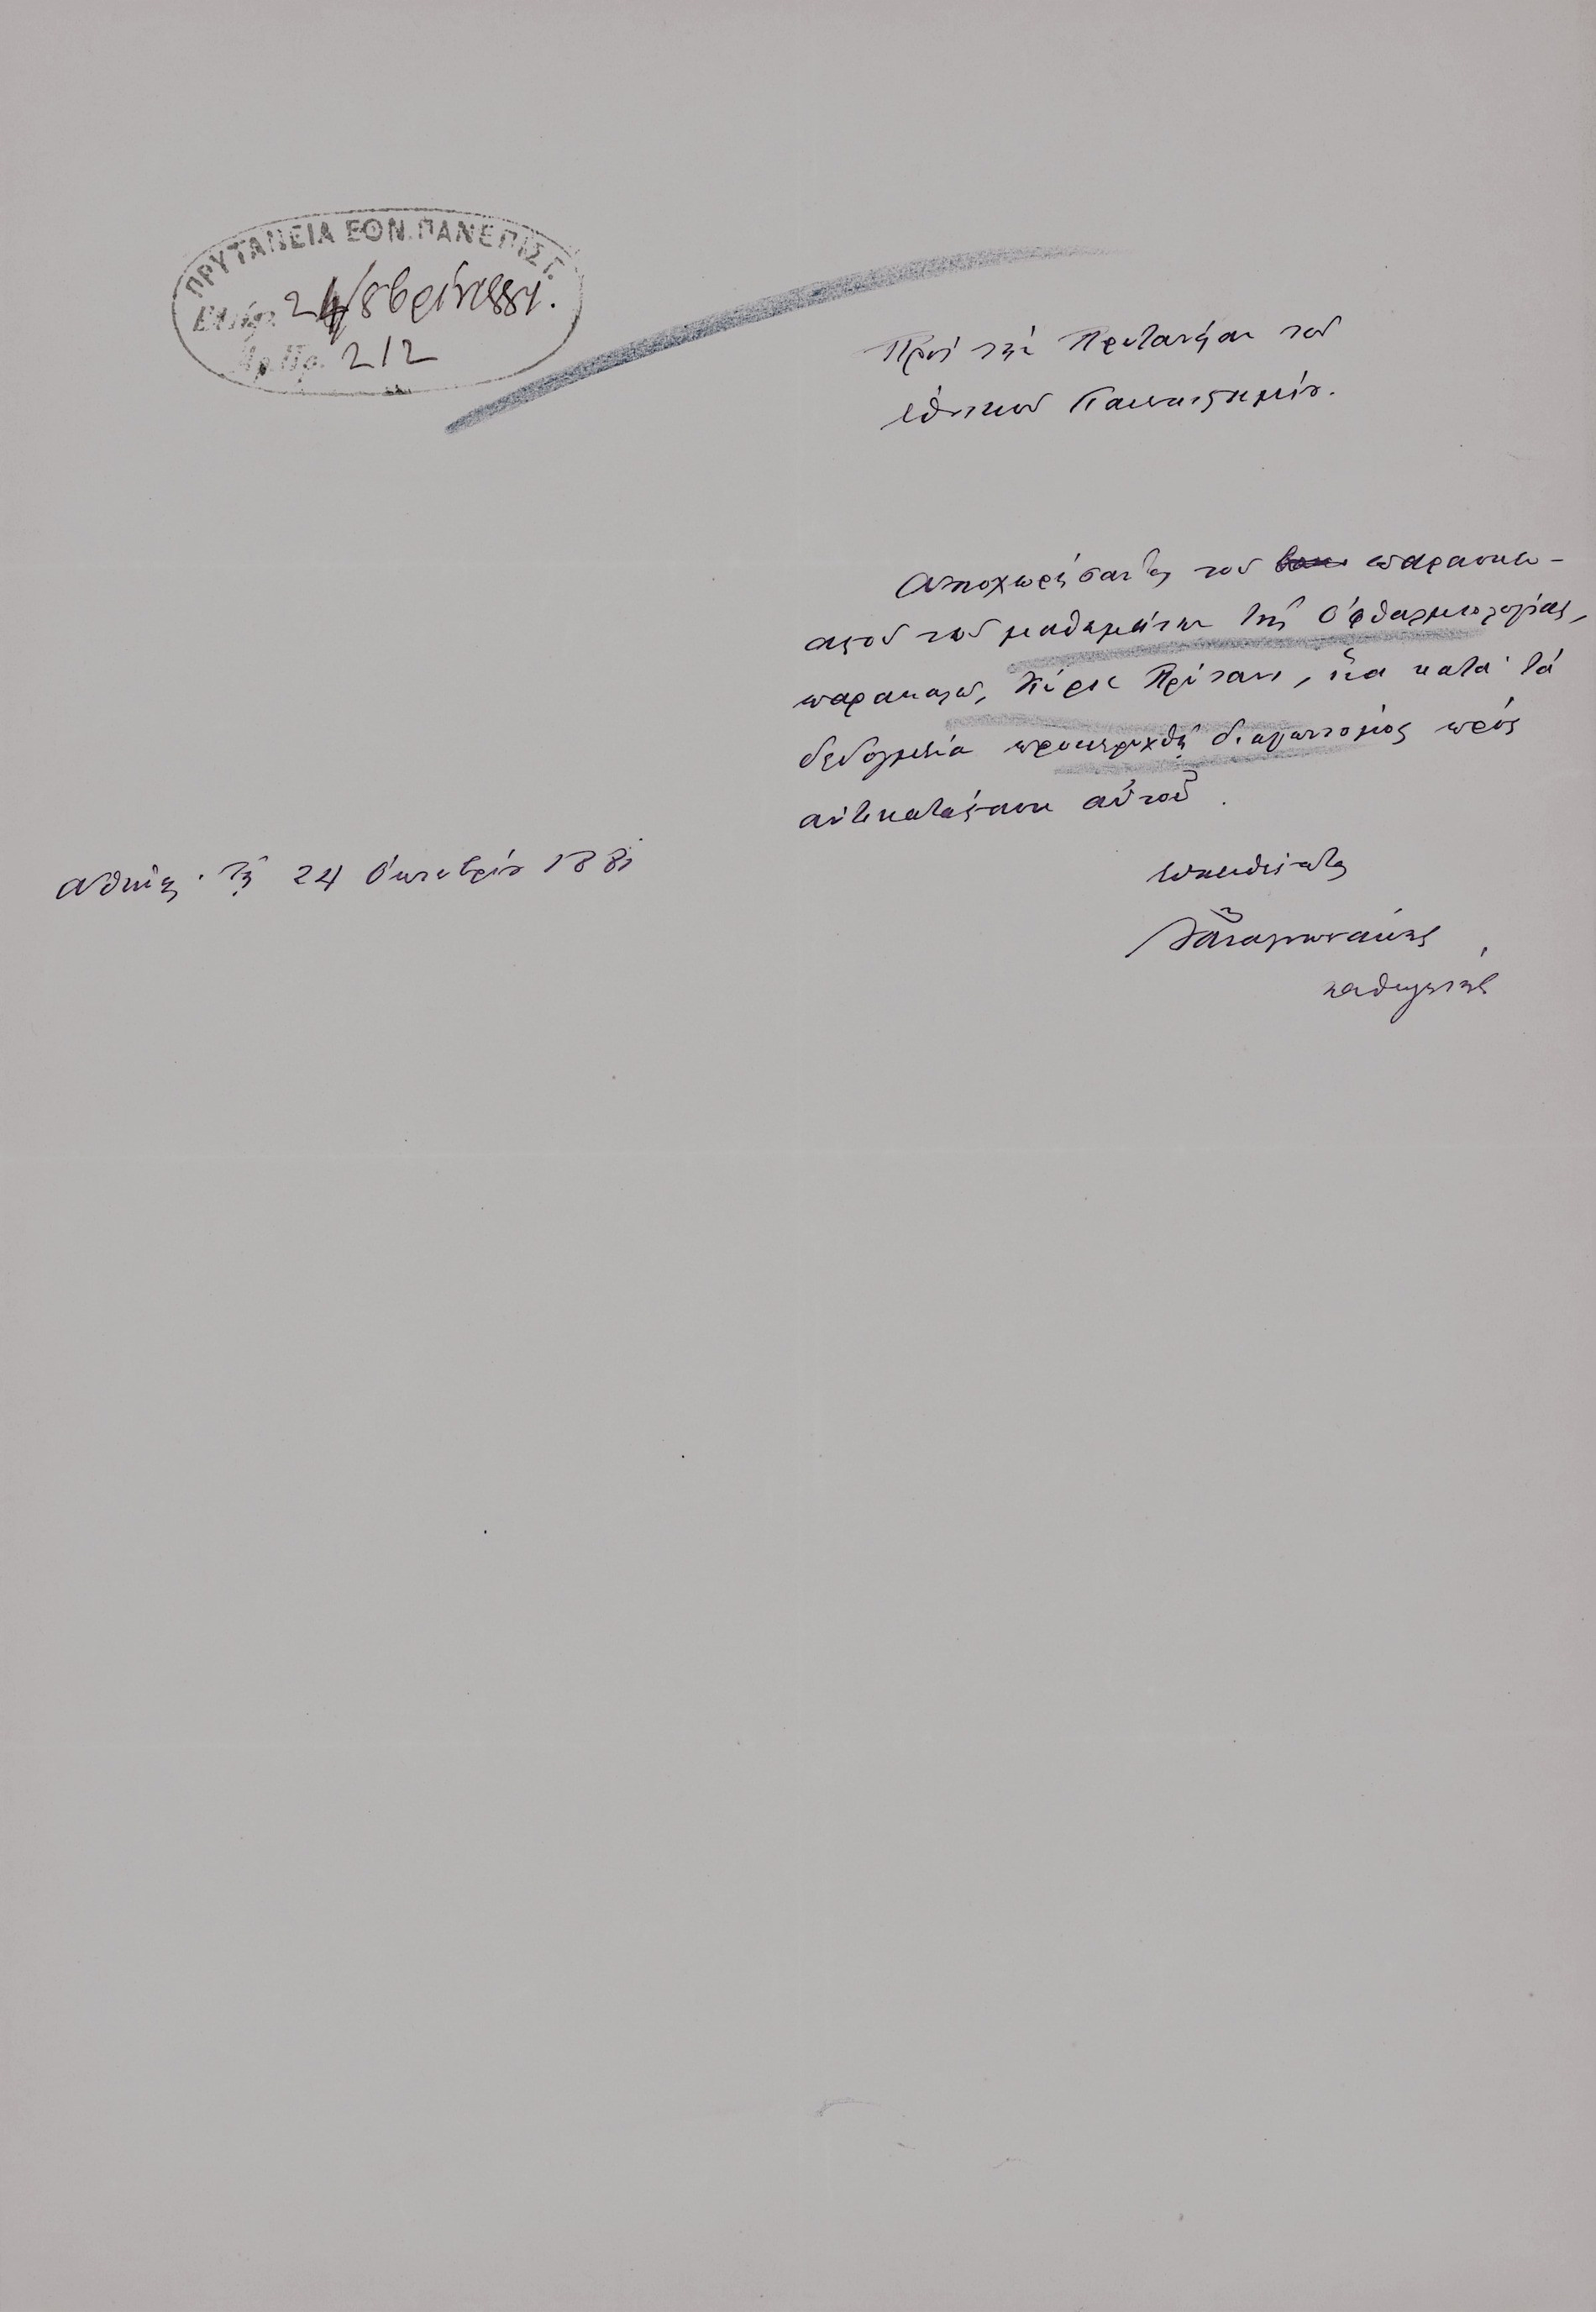 ΠΡΥΤΑΝΕΙΑ ΕΘΝ. ΠΑΝΕΠΙΣΤ.
Ελήφ. 24/8βρίου 1881.
Αρ. Πρ. 212
Πρὸς τὴν Πρυτανείαν τοῦ
ἐθνικοῦ Πανεπιστημίου.
Ἀποχωρήσαντος τοῦ παρασκευ-
αστοῦ τῶν μαθημάτων τῆς Ὀφθαλμολογίας,
παρακαλῶ, Κύριε Πρύτανι, ἵνα κατὰ τὰ
δεδογμένα προκηρυχθῇ διαγωνισμὸς πρὸς
ἀντικατάστασιν αὐτοῦ.
Ἀθήνησι τῇ 24 Ὀκτωβρίου 1881
εὐπειθέστατος
καθηγητὴς